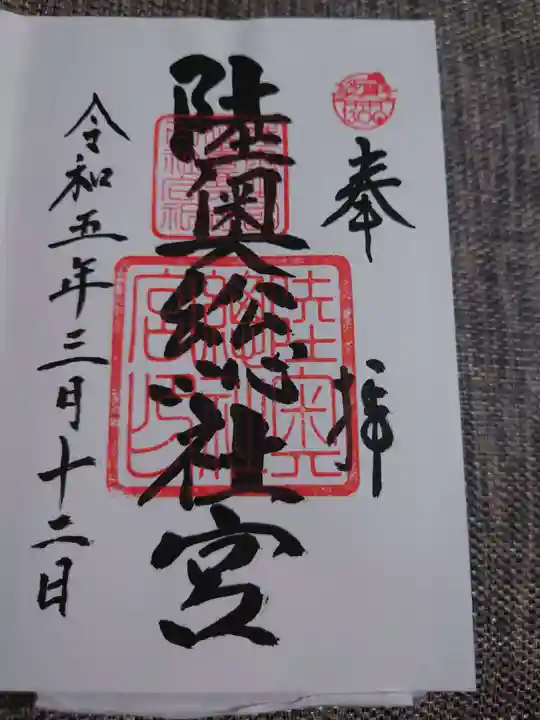 奉拝
陸奥総社宮
令和五年三月十二日
陸奥総社宮印
1300